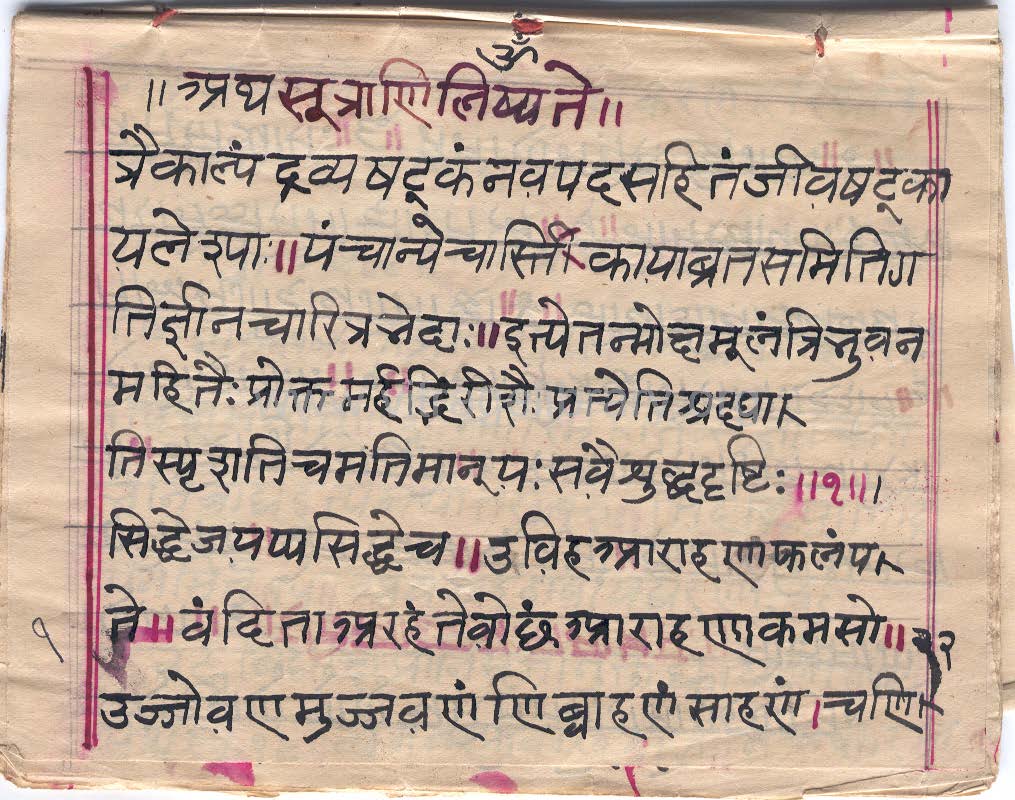 ॐ
॥ अथ सूत्राणि लिष्यते॥
त्रैकाल्यं द्रव्य षट्कं नव पद सहितं जीव षट्का
य लेश्याः॥ पंचान्ये चास्ति काया व्रत समिति ग
ति र्ज्ञान चारित्र भेदाः॥ इत्येतन्मोक्षमूलं त्रिभुवन
महितैः प्रोक्त मर्हद्भिरीशै प्रत्येति श्रद्दधा
ति स्पृशति च मतिमान् यः सवै शुद्धदृष्टिः ॥१॥।
सिद्धे जयप्प सिद्धे च॥ उविह आराहणा फलं प
त्ते॥ वंदिता अरहंते वोछं आराहणा कमसो॥ २
उज्जोवण मुज्जवणं णिब्बाहणं साहणं । च णि
१